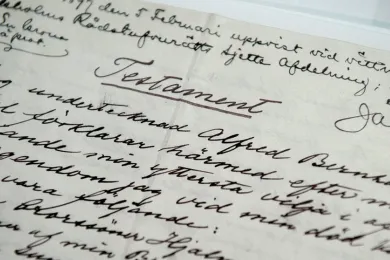 1897 den 5 Februari uppvist vid vittn
Stockholms Rådstufvurätts sjette Afdelning;
En krona
Testament
Ja
undertecknad Alfred Bern
förklarar härmed efter m
ande min yttersta vilja i a
egendom jag vid min död
vara följande:
Brorsöner Hjal
af min Br